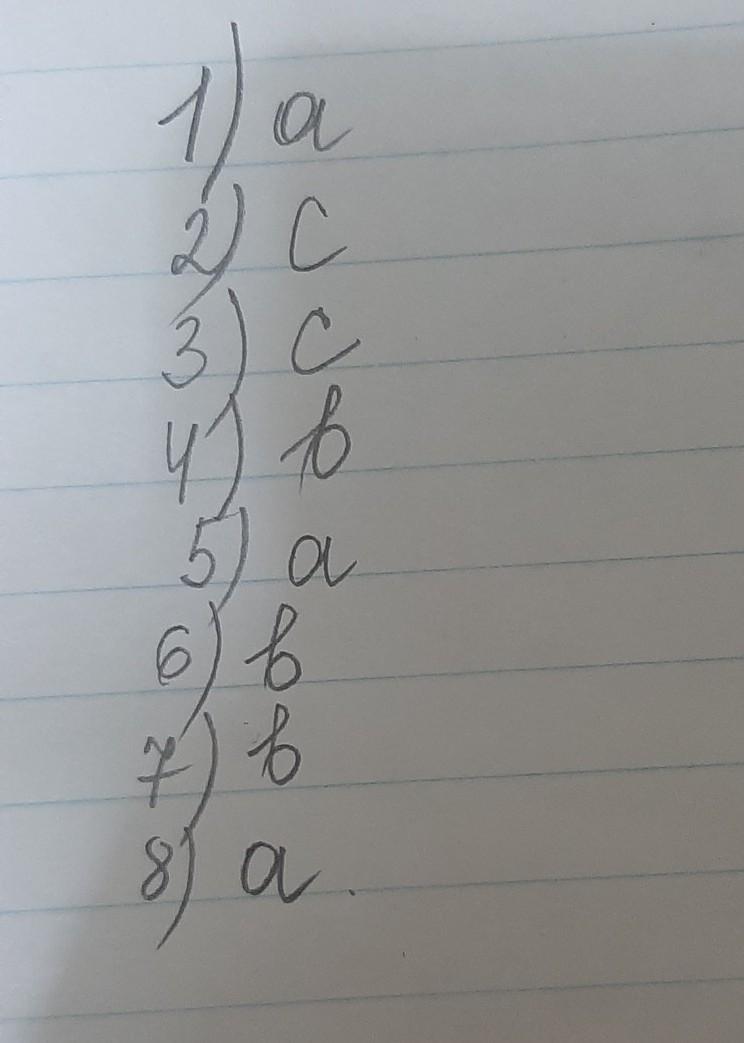 1) a
2) c
3) c
4) b
5) a
6) b
7) b
8) a.